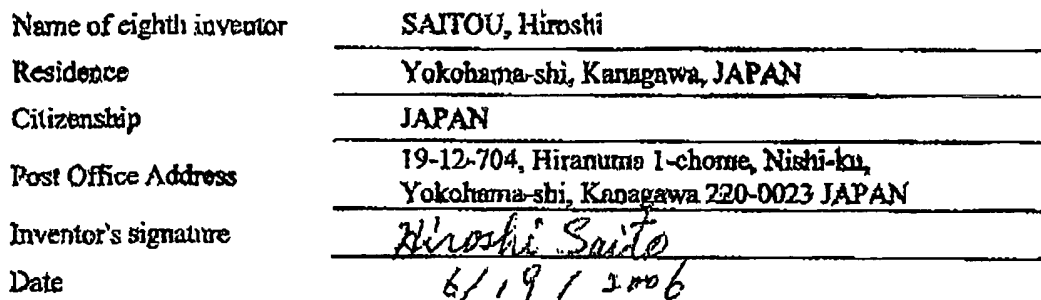 Name of eighth inventor SAITOU, Hiroshi
Residence Yokohama-shi, Kanagawa, JAPAN
Citizenship JAPAN
Post Office Address 19-12-704, Hiranuma 1-chome, Nishi-ku,
Yokohama-shi, Kanagawa 220-0023 JAPAN
Inventor's signature Hiroshi Saito
Date 6/19/2006